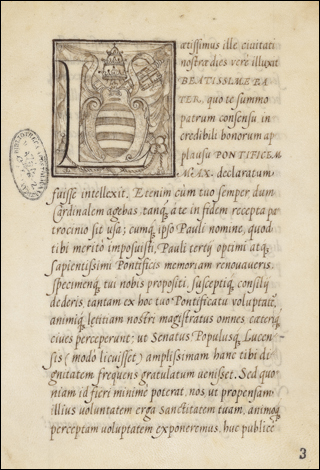 Lætissimus ille ciuitati
nostræ dies vere illuxit
BEATISSIME PA
TER, quo te summo
patrum consensu in
credibili bonorum ap
plausu PONTIFICEM
MAX. declaratum
fuisse intellexit. Etenim cùm tuo semper, dum
Cardinalem agebas, tanq̃ à te in fidem recepta pa
trocinio sit usa; cumq̃ ipso Pauli nomine, quod
tibi meritò imposuisti, Pauli tertij optimi atq̃
Sapientissimi Pontificis memoriam renouaueris,
specimenq̃ tui nobis propositi, susceptiq̃ consilij
dederis, tantam ex hoc tuo Pontificatu voluptatē,
animiq̃ letitiam nostri magistratus omnes caeteriq̃
ciues perceperunt; ut Senatus Populusq̃ Lucen-
sis (modò licuisset) amplissimam hanc tibi di
gnitatem frequens gratulatum uenisset. Sed quo
niam id fieri minime poterat, nos ut propensam
illius voluntatem erga sanctitatem tuam, animoq̃
perceptam voluptatem exponeremus, huc publice
3